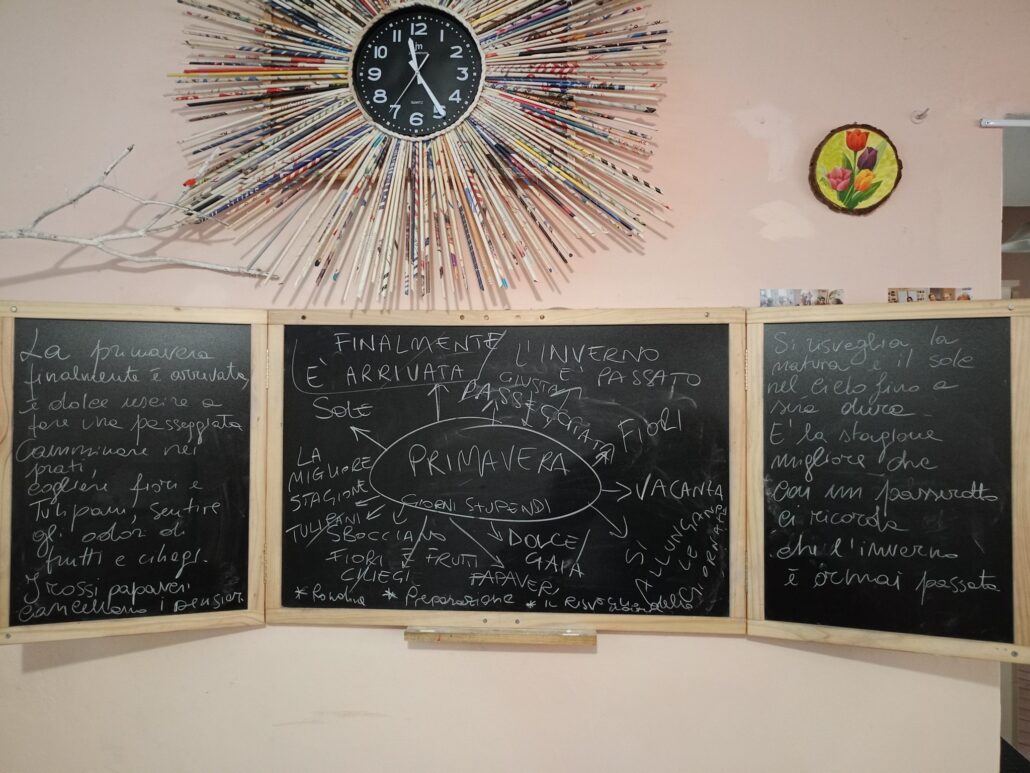 12
1
2
3
4
5
6
7
8
9
10
11
QUARTZ
La primavera
finalmente è arrivata,
è dolce uscire a
fare una passeggiata
Camminare nei
prati,
cogliere fiori e
Tulipani, sentire
gli odor di
frutti e ciliegi.
I rossi papaveri
cancellano i pensieri
FINALMENTE
È ARRIVATA
L'INVERNO
È PASSATO
GIUSTA
PASSEGGIATA
SOLE
FIORI
PRIMAVERA
GIORNI STUPENDI
LA
MIGLIORE
STAGIONE
VACANZA
TULIPANI
SBOCCIANO
FIORI E FRUTTI
CILIEGI
DOLCE/
GAIA
PAPAVERI
SI
ALLUNGANO
LE
GIORNATE
* Preparazione
* Il risveglio della
Si risveglia la
natura e il sole
nel cielo fino a
sera dura.
E' la stagione
migliore che
con un passerotto
ci ricorda
che l'inverno
è ormai passato